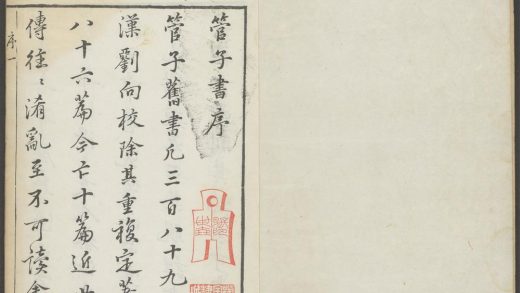 管子書序
管子舊書凡三百八十九
漢劉向校除其重複定著
八十六篇今亡十篇近世
傳往〻淆亂至不可讀余
序一